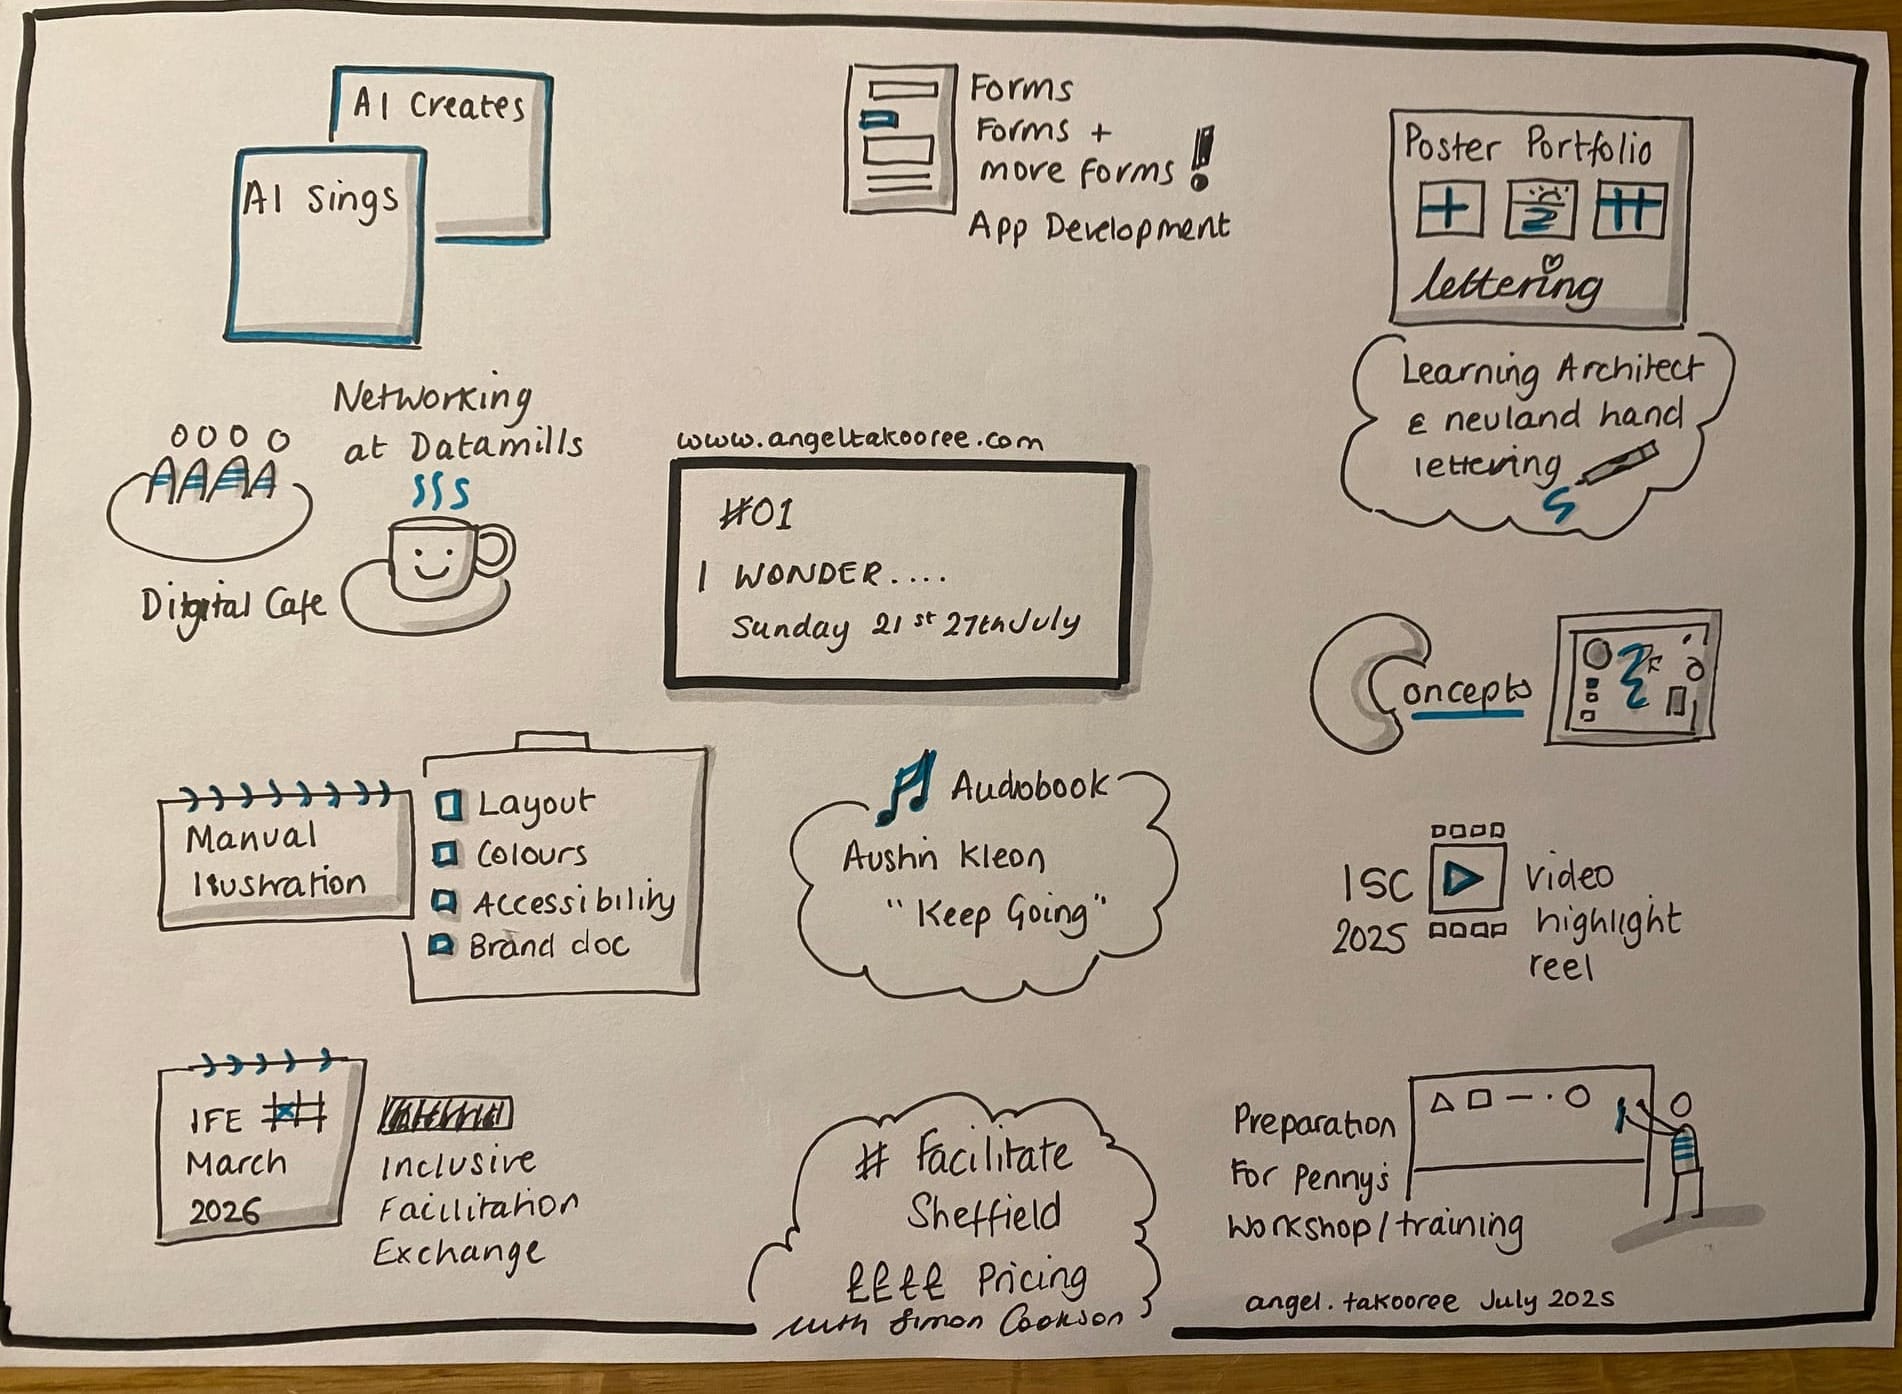 AI Creates
AI Sings
Forms
Forms +
more forms!
App Development
Poster Portfolio
lettering
Learning Architect
& neuland hand
lettering
Networking
at Datamills
Digital Cafe
www.angeltakooree.com
#01
I WONDER....
Sunday 21st 27th July
Concepts
Manual
Illustration
Layout
Colours
Accessibility
Brand doc
Audiobook
Austin Kleon
"Keep Going"
ISC
2025
video
highlight
reel
IFE
March
2026
Inclusive
Facilitation
Exchange
# Facilitate
Sheffield
££££ Pricing
with Simon Cookson
Preparation
For Penny's
workshop/training
angel.takooree July 2025